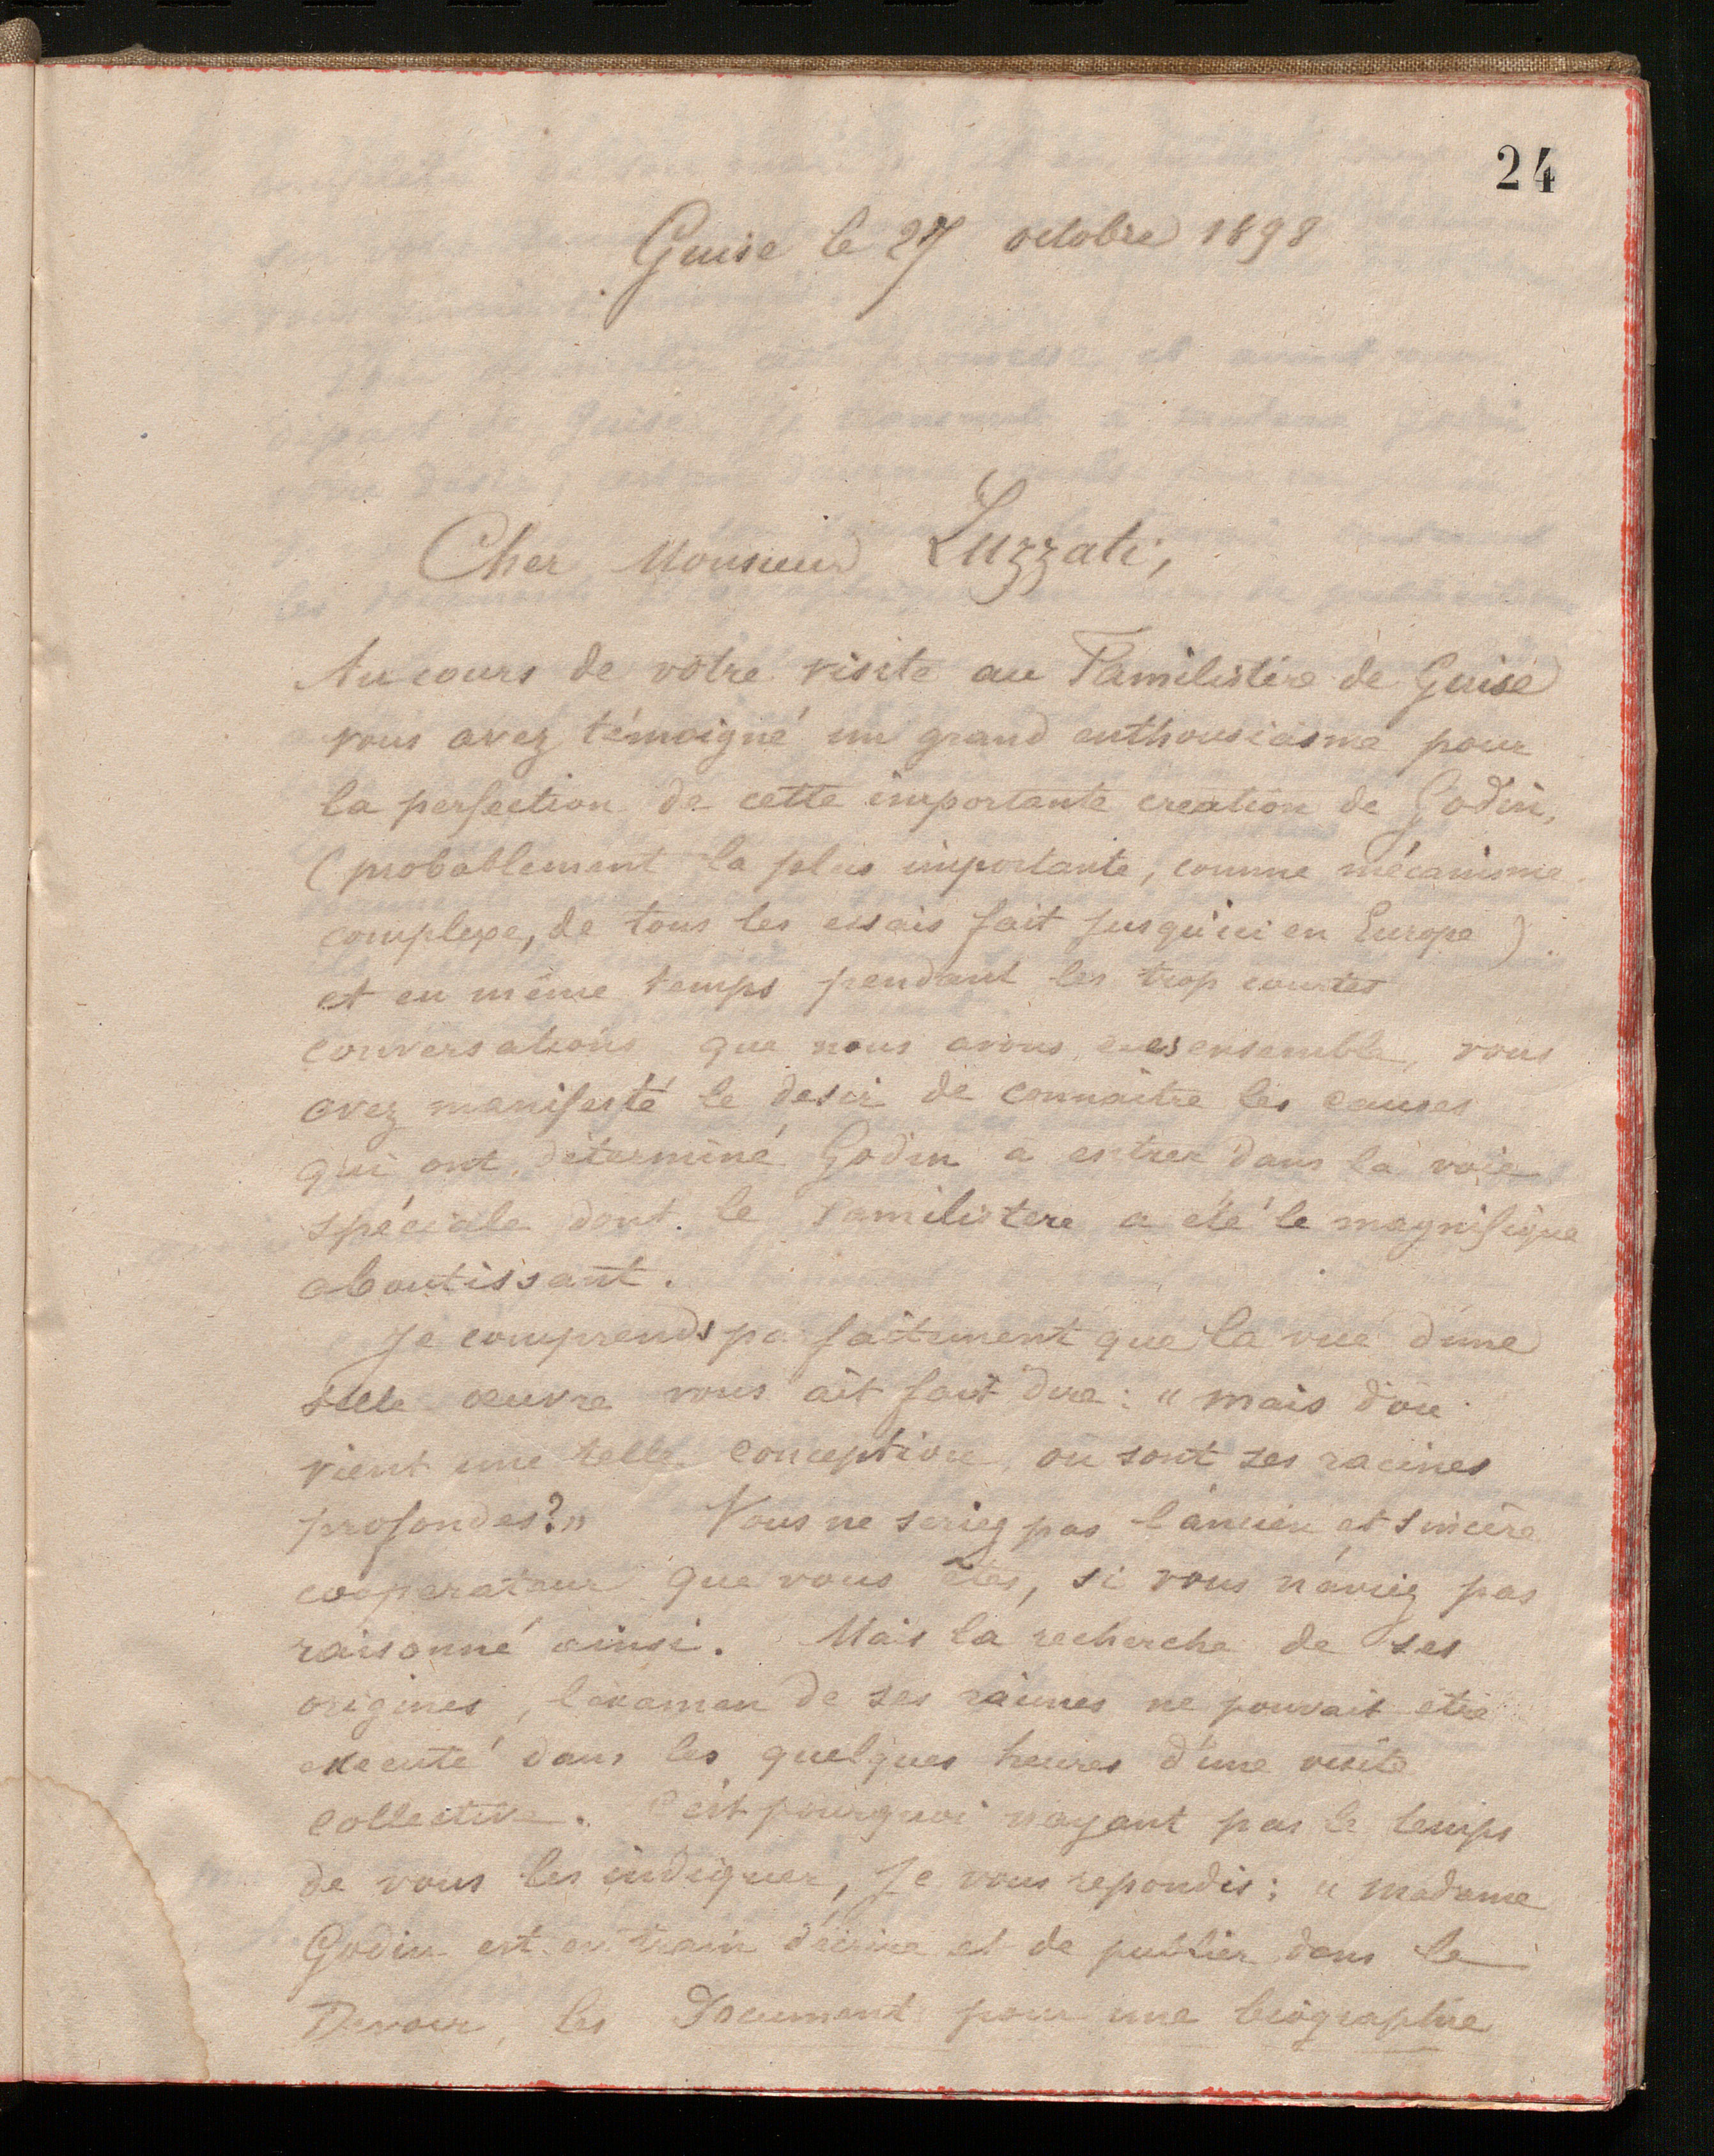 24
Guise le 27 octobre 1898
Cher Monsieur Luzzati,
Au cours de votre visite au Familistère de Guise
vous avez témoigné un grand enthousiasme pour
la perfection de cette importante creation de Godin,
(probablement la plus importante, comme mécanisme
complexe, de tous les essais fait jusqu'ici en Europe).
et en même temps pendant les trop courtes
conversations que nous avons eues ensemble, vous
avez manifesté le desir de connaître les causes
qui ont déterminé Godin a entrer dans la voie
spéciale dont le Familistere a été le magnifique
aboutissant.
Je comprends parfaitement que la vue d'une
telle oeuvre vous ait fait dire: "mais d'où
vient une telle conception, où sont ses racines
profondes?" Vous ne seriez pas l'ancien et sincère
cooperateur que vous êtes, si vous n'aviez pas
raisonné ainsi. Mais la recherche de ses
origines, l'examen de ses racines ne pouvait etre
executé dans les quelques heures d'une visite
collective. C'est pourquoi n'ayant pas le temps
de vous les indiquer, je vous repondis: "madame
Godin est en train d'écrire et de publier dans le
Devoir, les Document pour une biographie